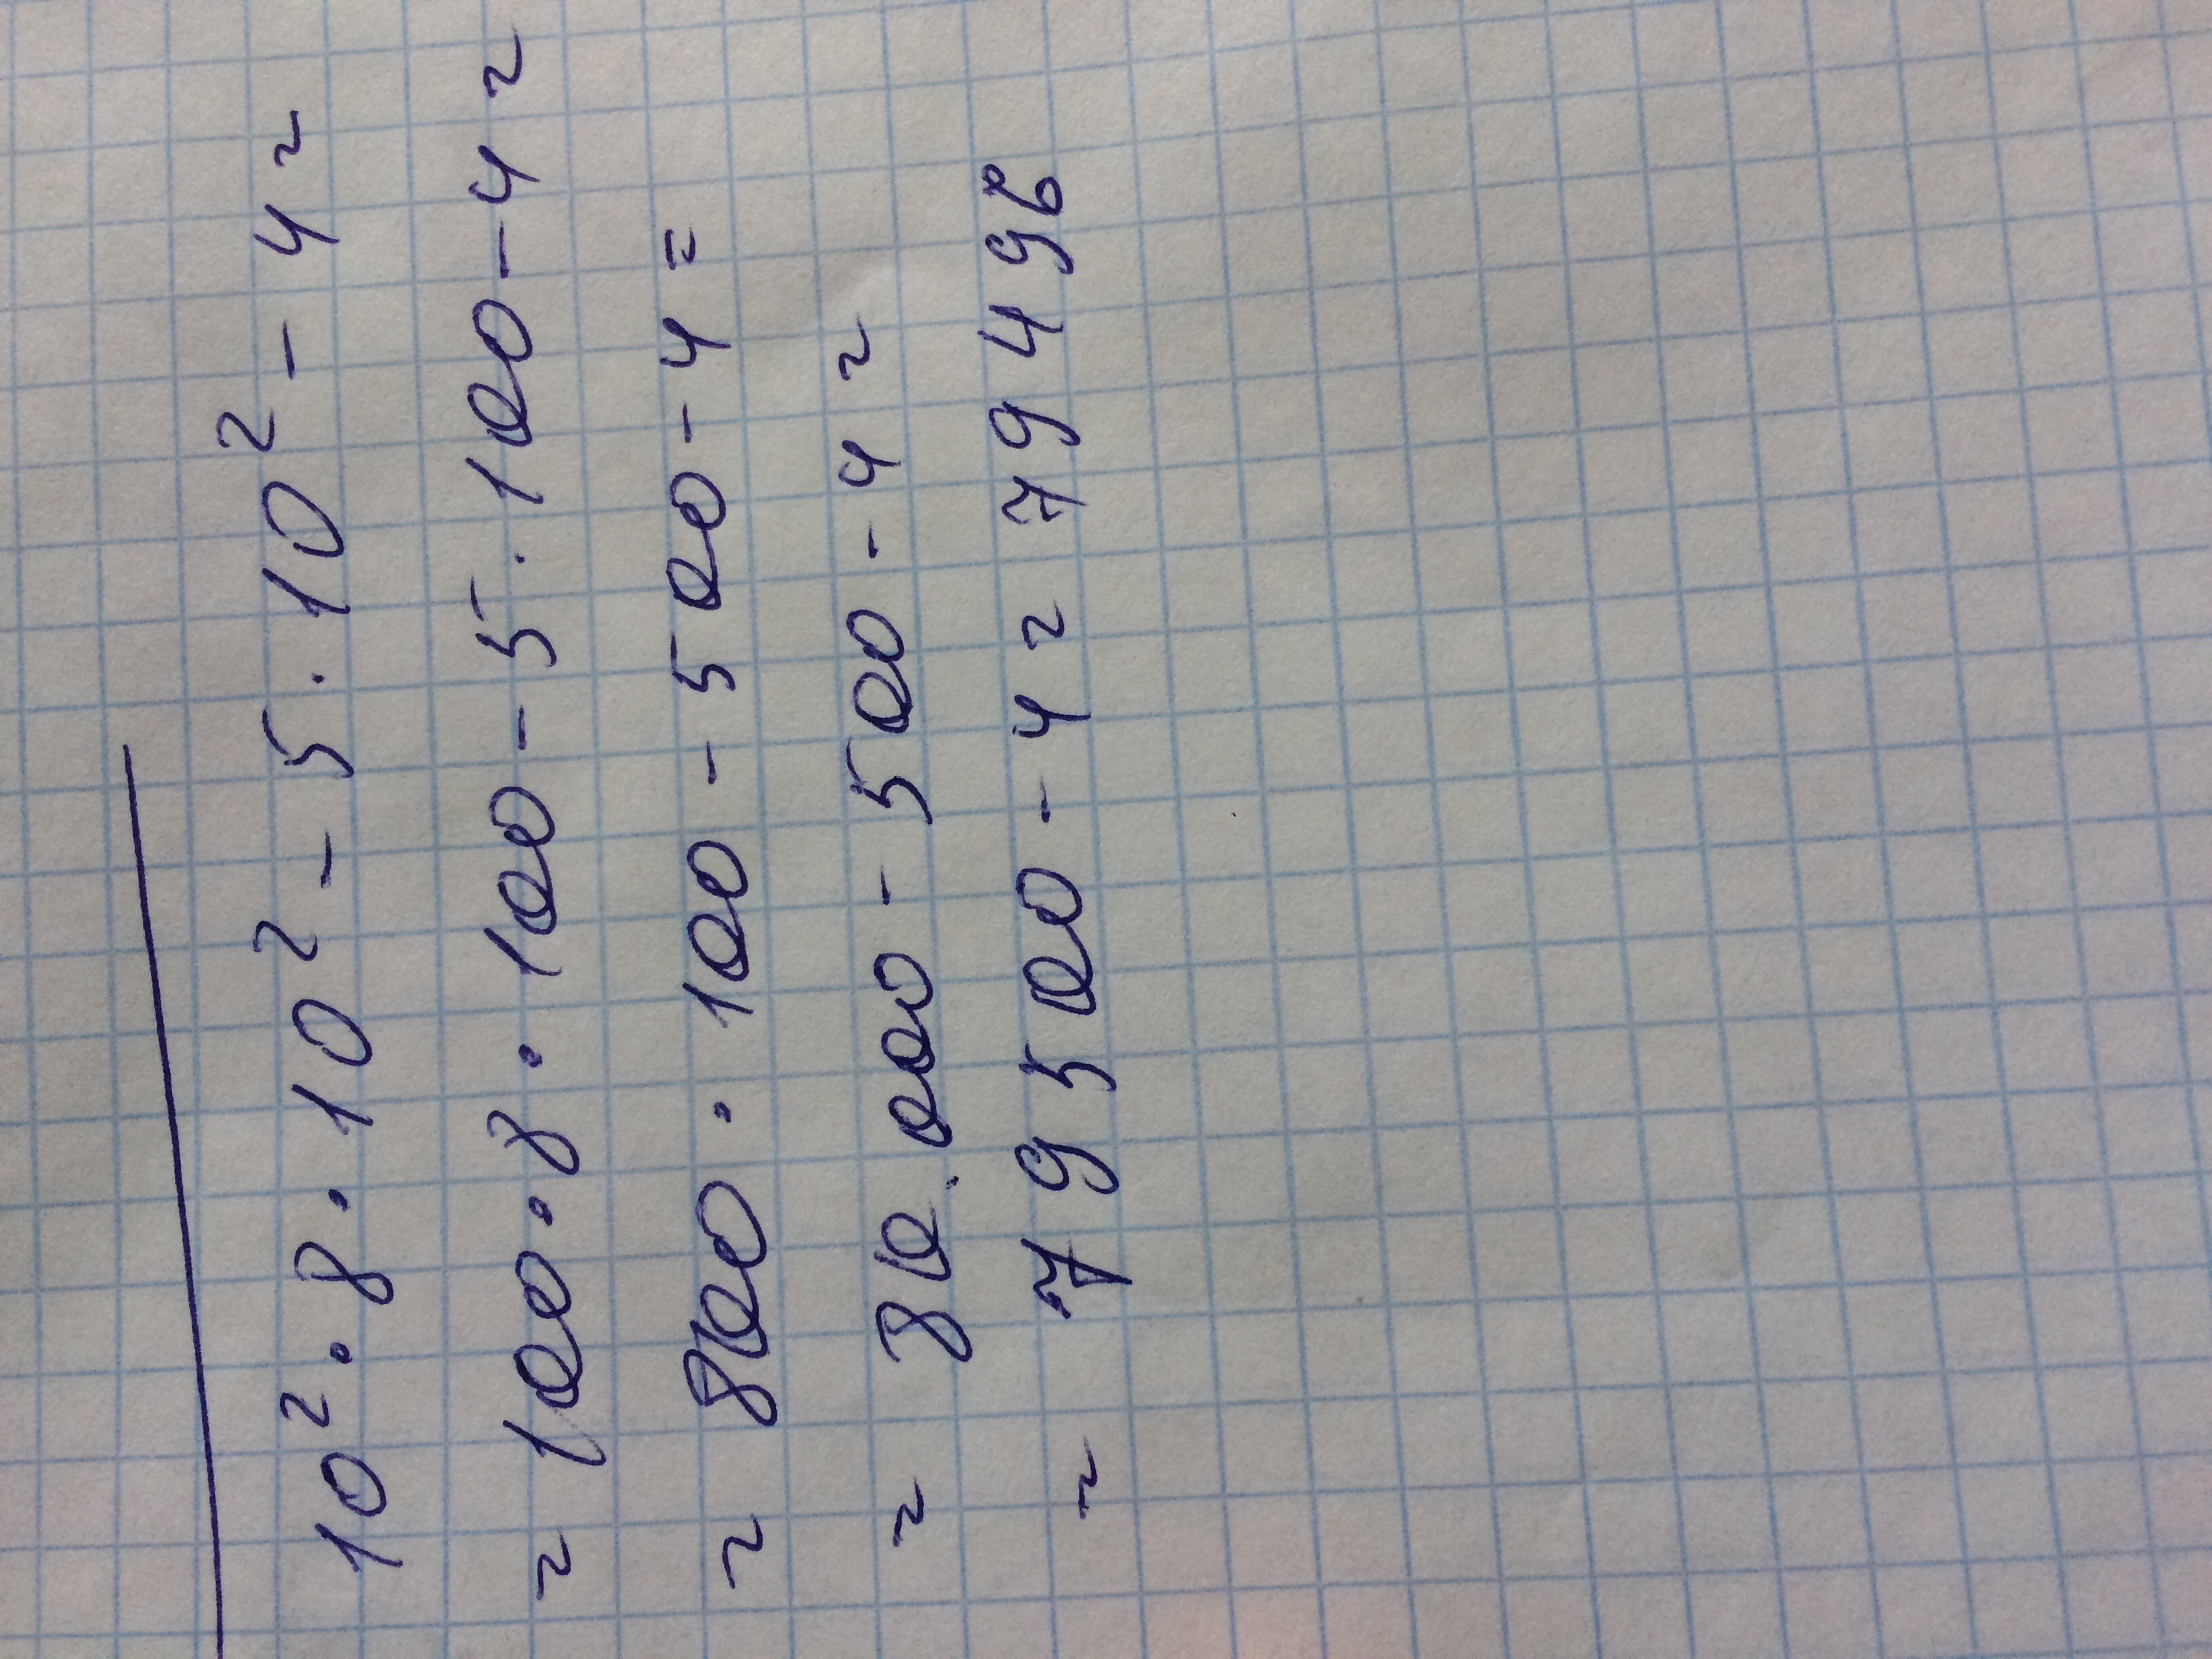 10² · 8 · 10² - 5 · 10² - 4 =
= 100 · 8 · 100 - 5 · 100 - 4 =
= 800 · 100 - 500 - 4 =
= 80.000 - 500 - 4 =
= 79500 - 4 = 79496